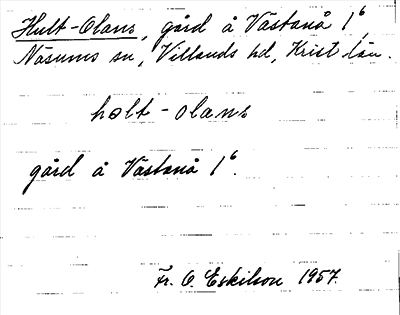 Hult-Olans, gård å Västanå 1⁶,
Näsums sn, Villands hd, Krist. län.
holt-olans
gård å Västanå 1⁶.
Fr. O. Eskilson 1957.